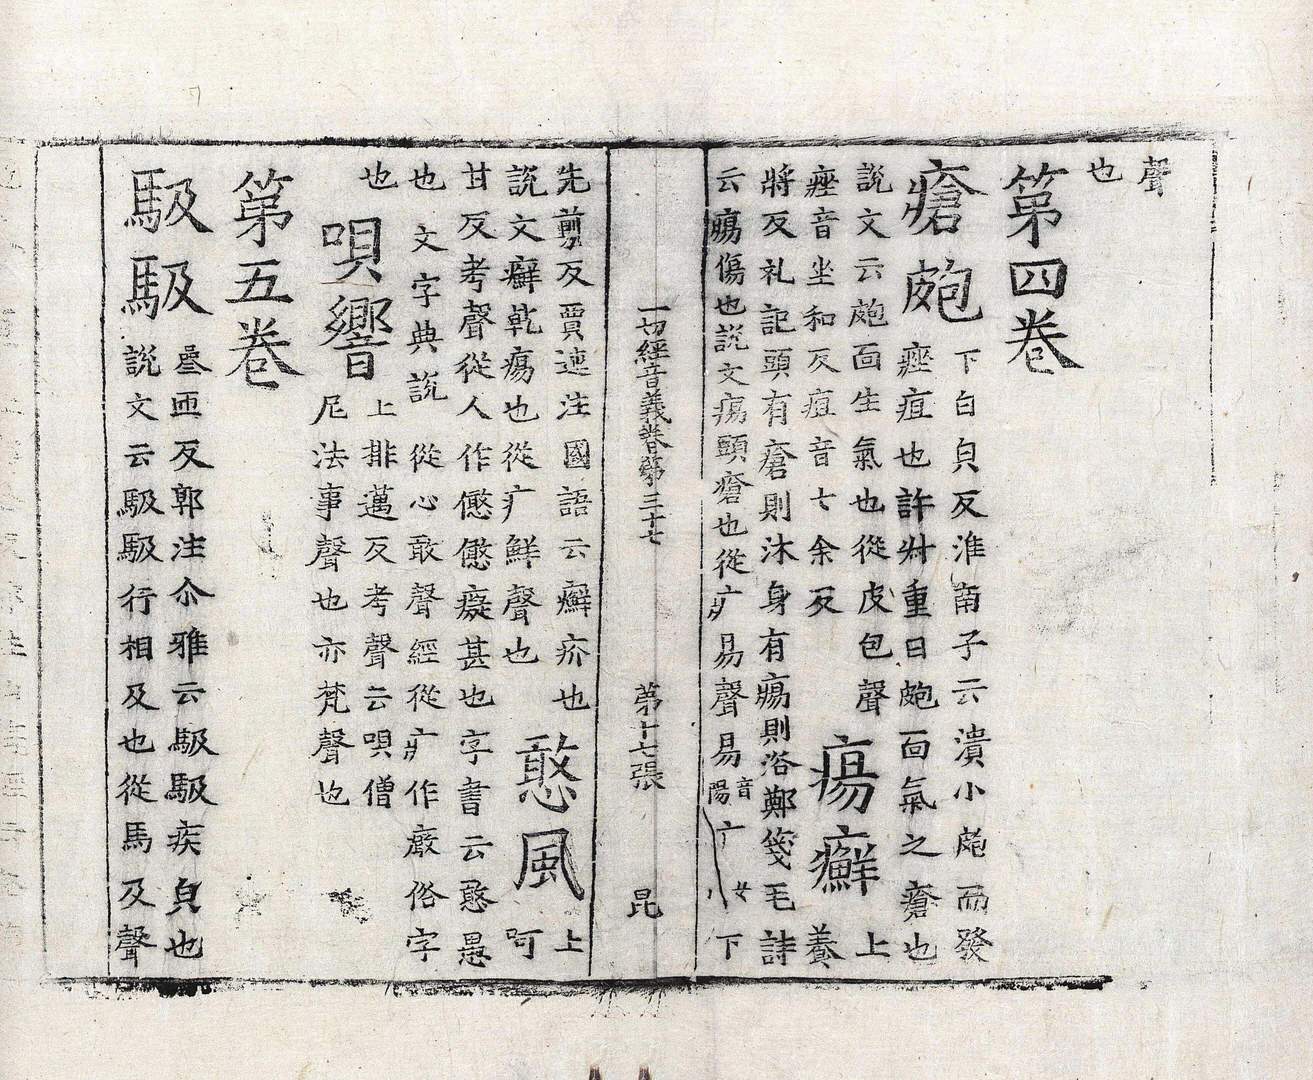 聲
也
第四卷
瘡皰
下白皃反淮南子云潰小皰而發
痤疽也許叔重曰皰面氣之瘡也
說文云皰面生氣也從皮包聲
痤音坐和反疽音七余反
瘍癬
上
養
將反礼記頭有瘡則沐身有瘍則浴鄭箋毛詩
云瘍傷也說文瘍頭瘡也從疒昜聲昜音陽疒女下
一切經音義卷第三十七 第十七張 昆
先剪反賈逵注國語云癬疥也
說文癬乾瘍也從疒鮮聲也
憨風
上
呵
甘反考聲從人作癡甚也字書云憨愚
也文字典說從心敢聲經從疒作俗字
也
唄響
上排邁反考聲云唄僧
尼法事聲也亦梵聲也
第五卷
馺馺
叅匝反郭注尒雅云馺馺疾皃也
說文云馺馺行相及也從馬及聲